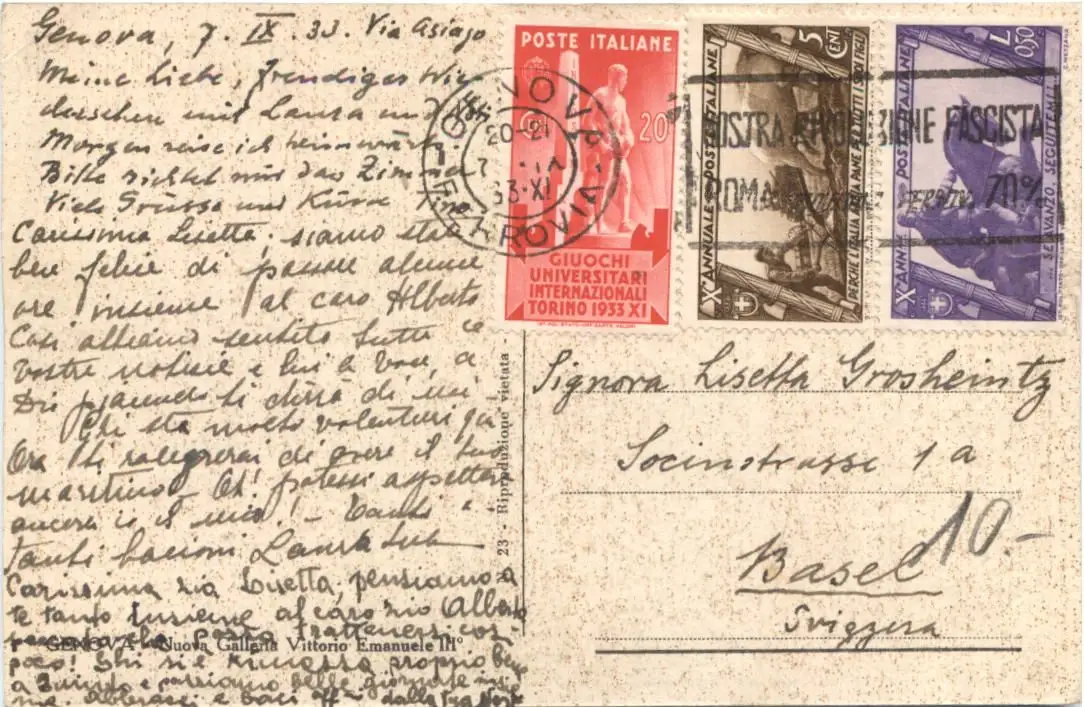 Genova, 7. IX. 33. Via Asiago
Meine Liebe, Freudiges Wie
dersehen mit Laura und
Morgen reise ich heimwärts.
Bitte richtet mir das Zimmer
Viele Grüsse und Küsse
Carissima Lisetta, siamo state
ben felice di passare alcune
ore insieme al caro Alberto
Così abbiamo sentito tutte le
vostre notizie e lui a voce, a
Dio piacendo ti dirà di noi
Chi sta molto volentieri qui
Ora ti rallegrerai di avere il tuo
maritino - Ah! potessi aspettare
ancora io il mio! - Tanti
tanti bacioni Laura
Carissima zia Lisetta, pensiamo a
te tanto insieme al caro zio Alberto
trattenersi così
poco! proprio bene
a e passiamo belle giornate insie
me. e baci dalla tua
GENOVA - Nuova Galleria Vittorio Emanuele IIIº
23 - Riproduzione vietata -
POSTE ITALIANE
20
GIUOCHI
UNIVERSITARI
INTERNAZIONALI
TORINO 1933 XI
5 CENT
POSTE ITALIANE
Xº ANNUALE
PERCHÈ L'ITALIA DIA PANE PER TUTTI I SUOI FIGLI
L 0,50
POSTE ITALIANE
Xº ANNUALE
SE AVANZO, SEGUITEMI
GENOVA
20-21
7 IX
33-XI
FERROVIA
MOSTRA RIVOLUZIONE FASCISTA
ROMA 70%
Signora Lisetta Grosheintz
Socinstrasse 1a
10.-
Basel
Svizzera